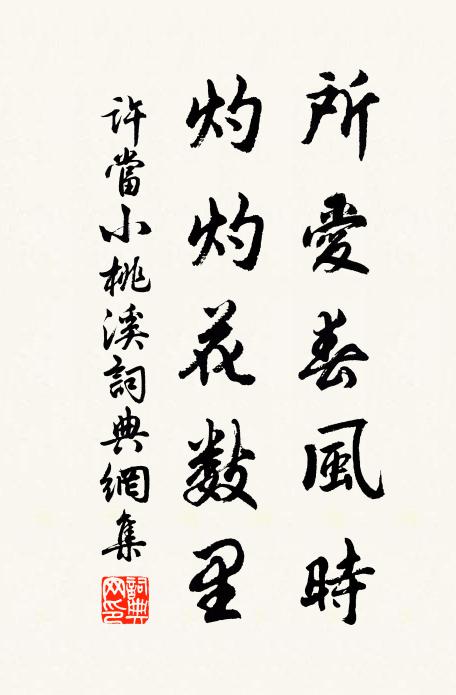 所愛春風時
灼灼花數里
許當小桃溪詞典網集
詞典网印